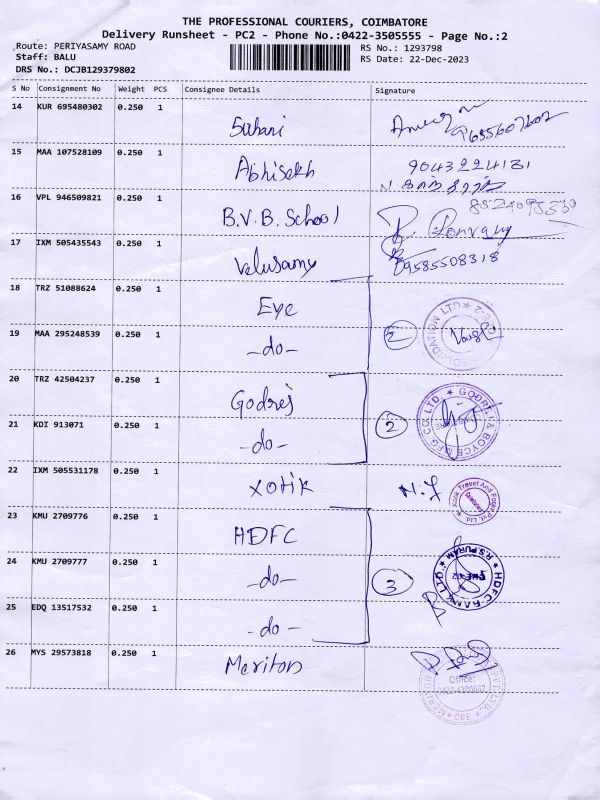 THE PROFESSIONAL COURIERS, COIMBATORE
Delivery Runsheet - PC2 - Phone No.:0422-3505555 - Page No.:2
Route: PERIYASAMY ROAD RS No.: 1293798
Staff: BALU RS Date: 22-Dec-2023
DRS No.: DCJB129379802
S No Consignment No Weight PCS Consignee Details Signature
14 KUR 695480302 0.250 1
Suhani
15 MAA 107528109 0.250 1
Abhisekh 9043224181
16 VPL 946509821 0.250 1
B.V.B. School
17 IXM 505435543 0.250 1
Velusamy 9585508318
18 TRZ 51088624 0.250 1
Eye
19 MAA 295248539 0.250 1
-do- 2
20 TRZ 42504237 0.250 1
Godrej GODREJ & BOYCE MFG CO. LTD.
21 KDI 913071 0.250 1
-do- 2
22 IXM 505531178 0.250 1
Xotik N.J Xotik Travel And Forex Pvt Ltd
23 KMU 2709776 0.250 1
HDFC
24 KMU 2709777 0.250 1
-do- 3 HDFC BANK LTD. R.S.PURAM
25 EDQ 13517532 0.250 1
-do-
26 MYS 29573818 0.250 1
Meriton Office: CBE